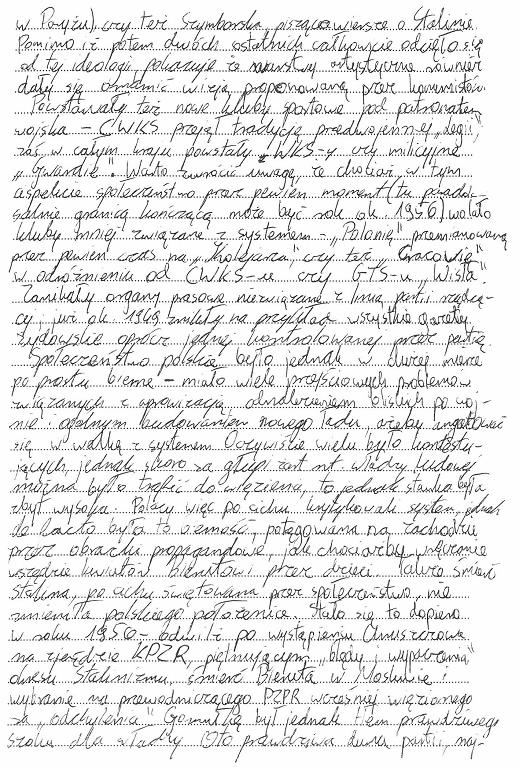 w Paryżu) czy też Szymborska, pisząca wiersze o Stalinie.
Pomimo iż potem dwóch ostatnich całkowicie odcięło się
od tej ideologii pokazuje że warstwy artystyczne również
dały się omamić wizją proponowaną przez komunistów.
Powstawały też nowe kluby sportowe pod patronatem
wojska – CWKS przejął tradycję przedwojennej „Legii",
zaś w całym kraju powstały WKS-y czy milicyjne
„Gwardie". Warto zwrócić uwagę, że chociaż w tym
aspekcie społeczeństwo przez pewien moment (tu
graniczą kończącą może być rok ok. 1956) wolało
kluby mniej związane z systemem – „Polonię" przemianowaną
przez pewien czas na „Kolejarza", czy też „Cracovię"
w odróżnieniu od CWKS-u czy GTS-u „Wisła".
Zamikały organy prasowe niezwiązane z linią partii rządzą-
cej, już ok. 1949 znikły na przykład wszystkie gazety
żydowskie oprócz jednej kontrolowanej przez partię.
Społeczeństwo polskie było jednak w dużej mierze
po prostu bierne – miało wiele przejściowych problemów
związanych z aprowizacją, odnalezieniem bliskich po woj-
nie i ogólnym budowaniem nowego ładu, ażeby angażować
się w walkę z systemem. Oczywiście wielu było kontestu-
jących, jednak skoro za głupi żart nt. władzy ludowej
można było trafić do więzienia, to jednak stawka była
zbyt wysoka. Polacy więc po cichu krytykowali system, jednak
de facto była to ciemność, potęgowana na zachodzie
przez obrazki propagandowe, jak chociażby wręczanie
wszędzie kwiatów Bierutowi przez dzieci. Także śmierć
Stalina, po cichu świętowana przez społeczeństwo, nie
zmieniła polskiego położenia. Stało się to dopiero
w roku 1956 – odwilż po wystąpieniu Chruszczowa
na zjeździe KPZR, piętnującym „błędy i wypaczenia"
okresu Stalinizmu, śmierć Bieruta w Moskwie i
wybranie na przewodniczącego PZPR wcześniej więzionego
za „odchylenia" Gomułkę był jednak tłem prawdziwego
szoku dla władzy i to prawdziwa partii, naj-